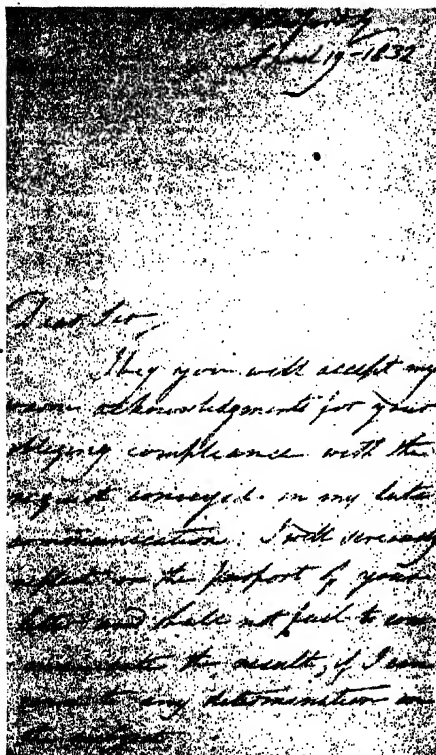 April 19th 1832
Dear Sir,
I beg you will accept my
warm acknowledgments for your
obliging compliance with the
request conveyed in my late
communication. I will seriously
reflect on the purport of your
letter and shall not fail to com
municate the result, if I can
come to any determination on
the subject